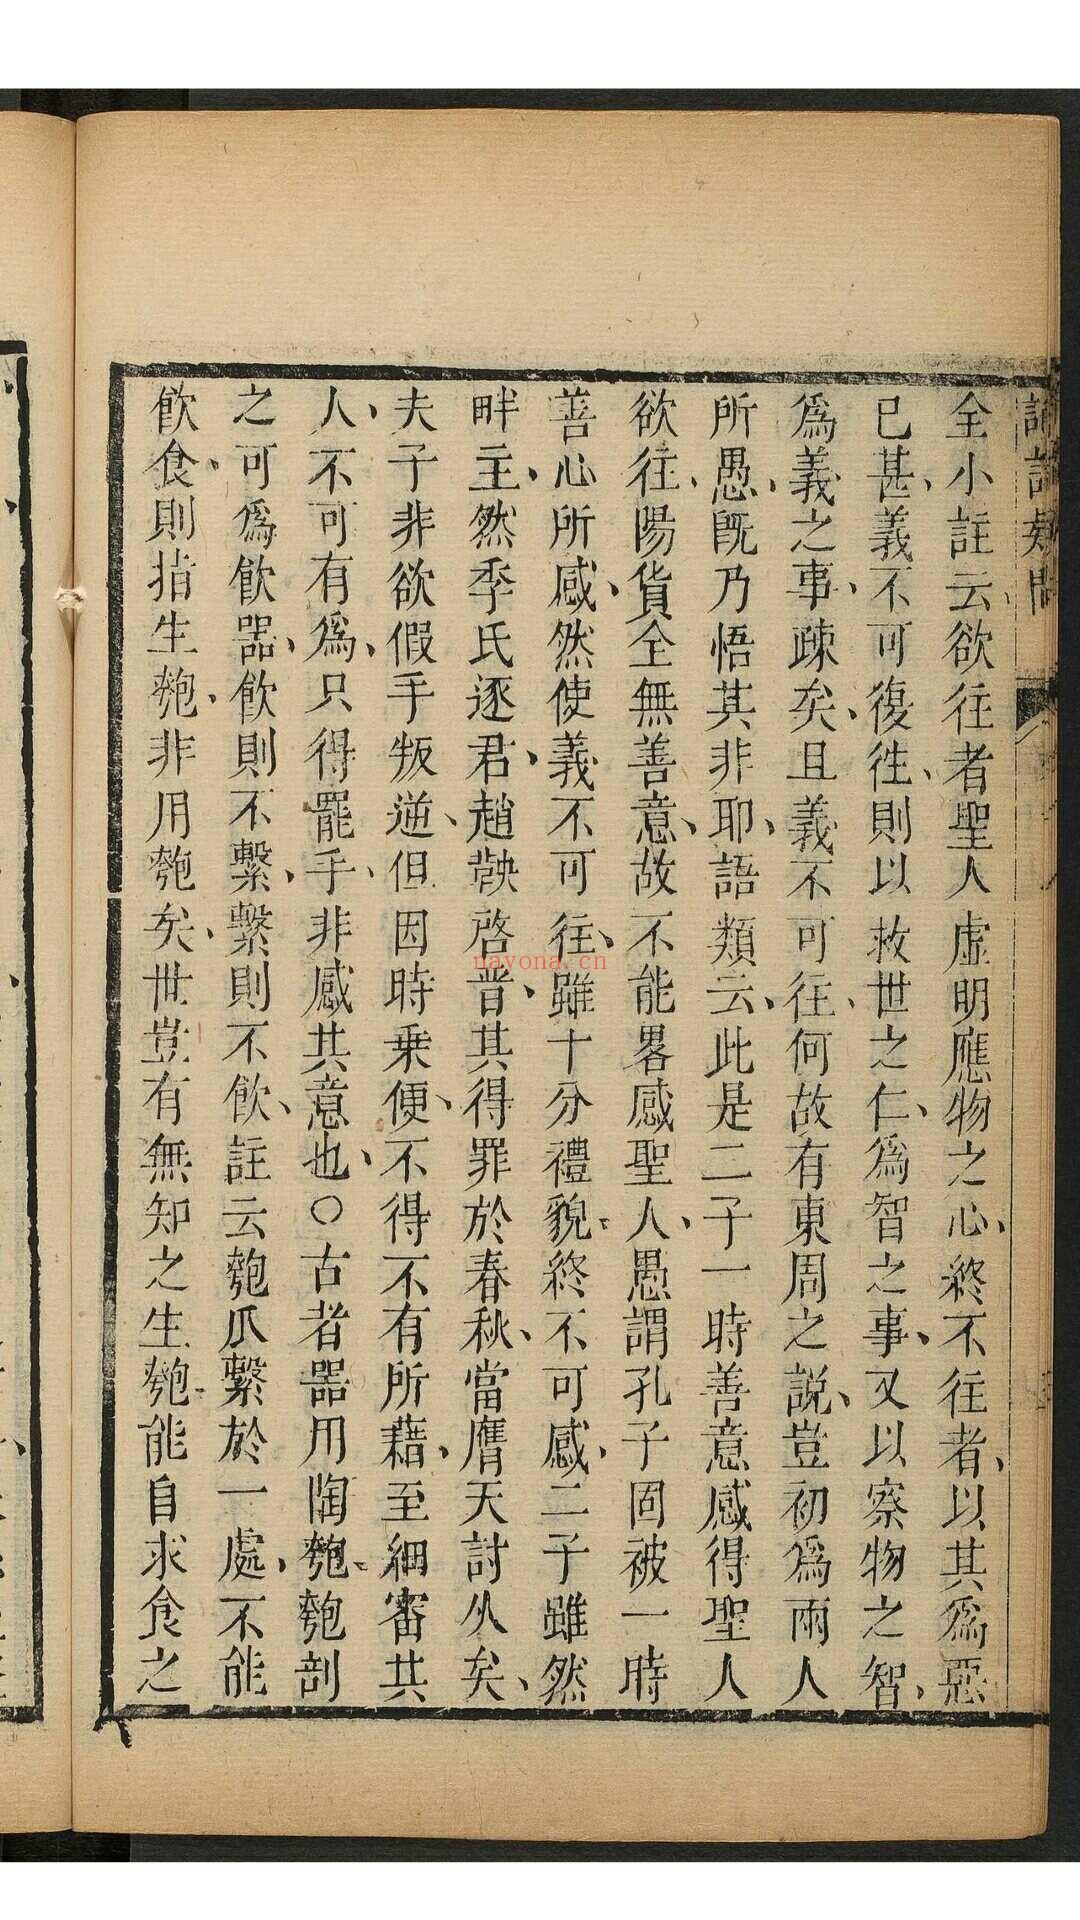 全小註云欲往者聖人虛明應物之心終不往者以其爲惡
已甚義不可復徃則以救世之仁爲智之事又以察物之智
爲義之事疎矣且義不可往何故有東周之説豈初爲兩人
所愚旣乃悟其非耶語類云此是二子一時善意感得聖人
欲往陽貨全無善意故不能畧感聖人愚謂孔子固被一時
善心所感然使義不可往雖十分禮貌終不可感二子雖然
畔主然季氏逐君趙鞅啓晋其得罪於春秋當膺天討久矣
夫子非欲假手叛逆但因時乗便不得不有所藉至細審其
人不可有爲只得罷手非感其意也○古者器用陶匏匏剖
之可爲飮器飮則不繫繫則不飮註云匏瓜繫於一處不能
飮食則指生匏非用匏矣世豈有無知之生匏能自求食之
nayona.cn